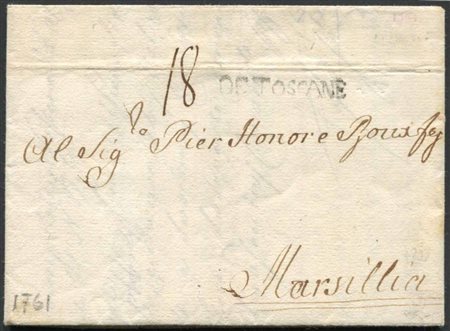 18
DE TOSCANE
Al Sig.ro Pier Honore Roux
Marsillia
1761